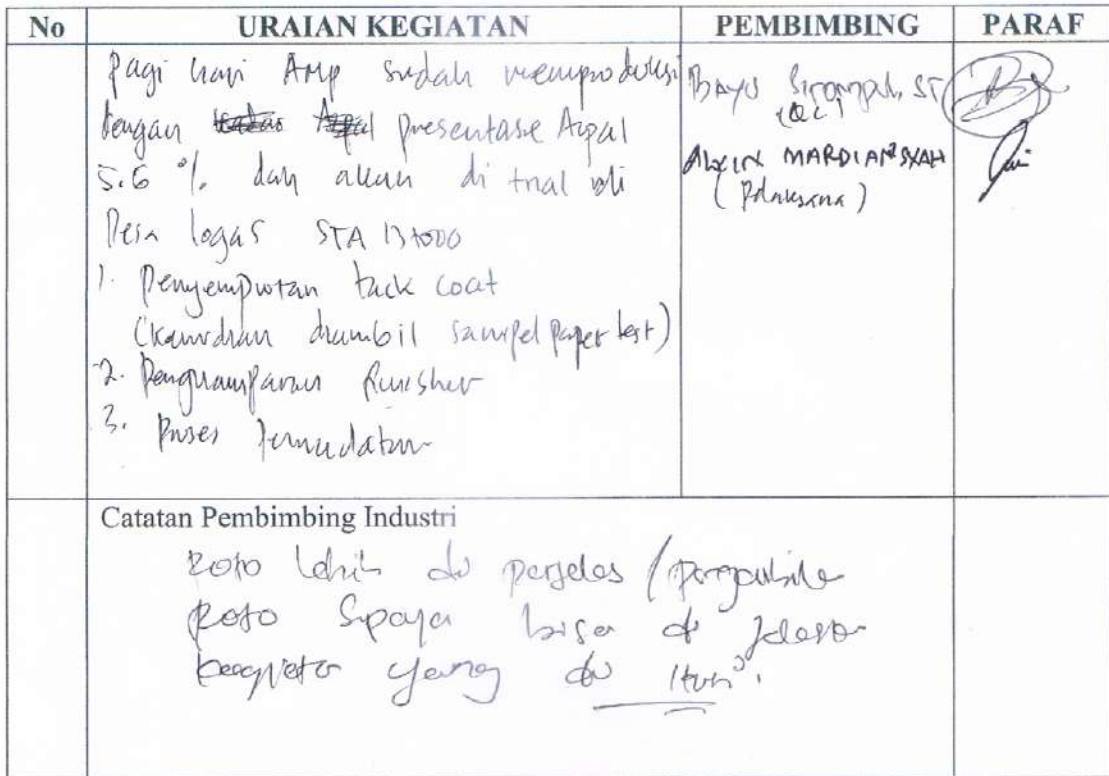 No URAIAN KEGIATAN PEMBIMBING PARAF
Pagi hari Amp sudah memproduksi
dengan presentase Aspal
5.6 % dan akan di trial di
Desa logas STA 13+000
1. Penyemprotan tack coat
(kemudian diambil sampel paper test)
2. Penghamparan finisher
3. Proses pemadatan
BAYU ST
(QC)
ALVIN MARDIANSYAH
(Pelaksana)
Catatan Pembimbing Industri
Foto lebih di perjelas /
Foto Supaya bisa di
yang di